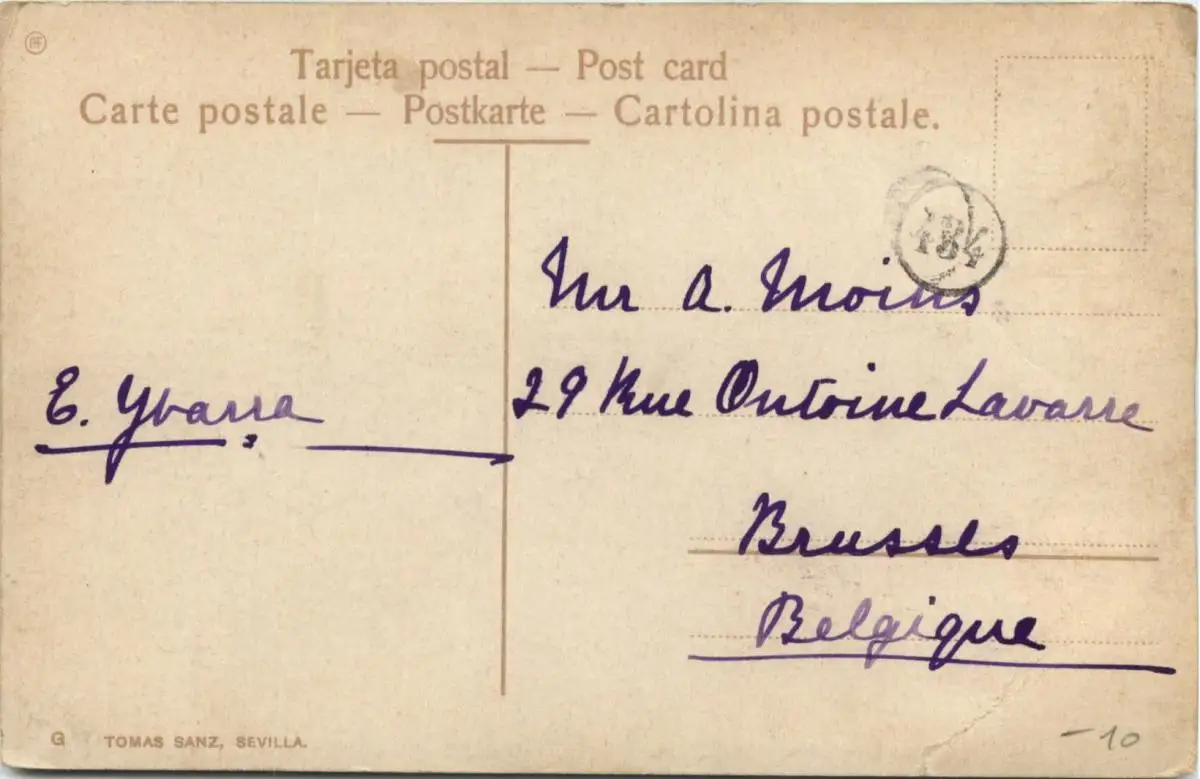 Tarjeta postal — Post card
Carte postale — Postkarte — Cartolina postale.
Mr A. Moins
29 Rue Antoine Lavarre
E. Ybarra
Brussels
Belgique
G TOMAS SANZ, SEVILLA.
-10